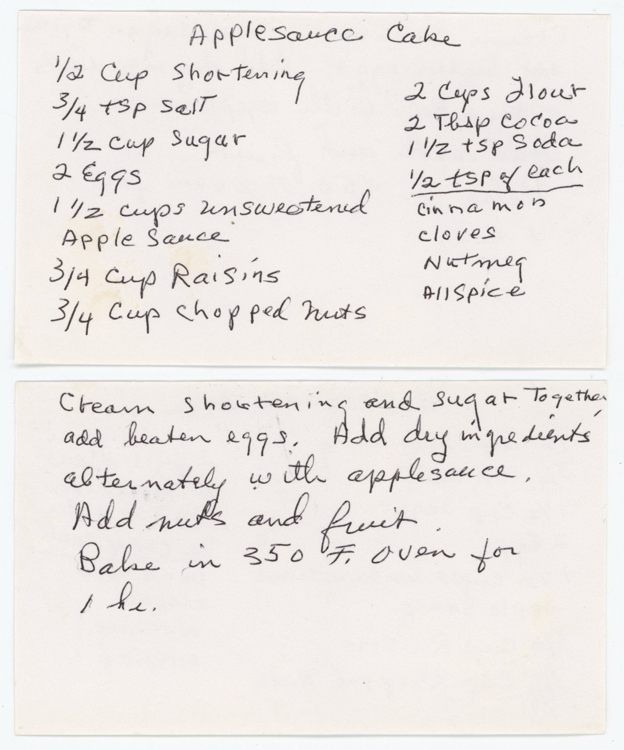 Applesauce Cake
1/2 Cup Shortening
3/4 tsp Salt
1 1/2 cup Sugar
2 Eggs
1 1/2 cups unsweetened
Apple Sauce
3/4 Cup Raisins
3/4 Cup Chopped nuts
2 Cups Flour
2 Tbsp Cocoa
1 1/2 tsp Soda
1/2 tsp of each
Cinnamon
Cloves
Nutmeg
AllSpice
Cream shortening and sugar Together,
add beaten eggs. Add dry ingredients
alternately with applesauce.
Add nuts and fruit.
Bake in 350 F. oven for
1 hr.